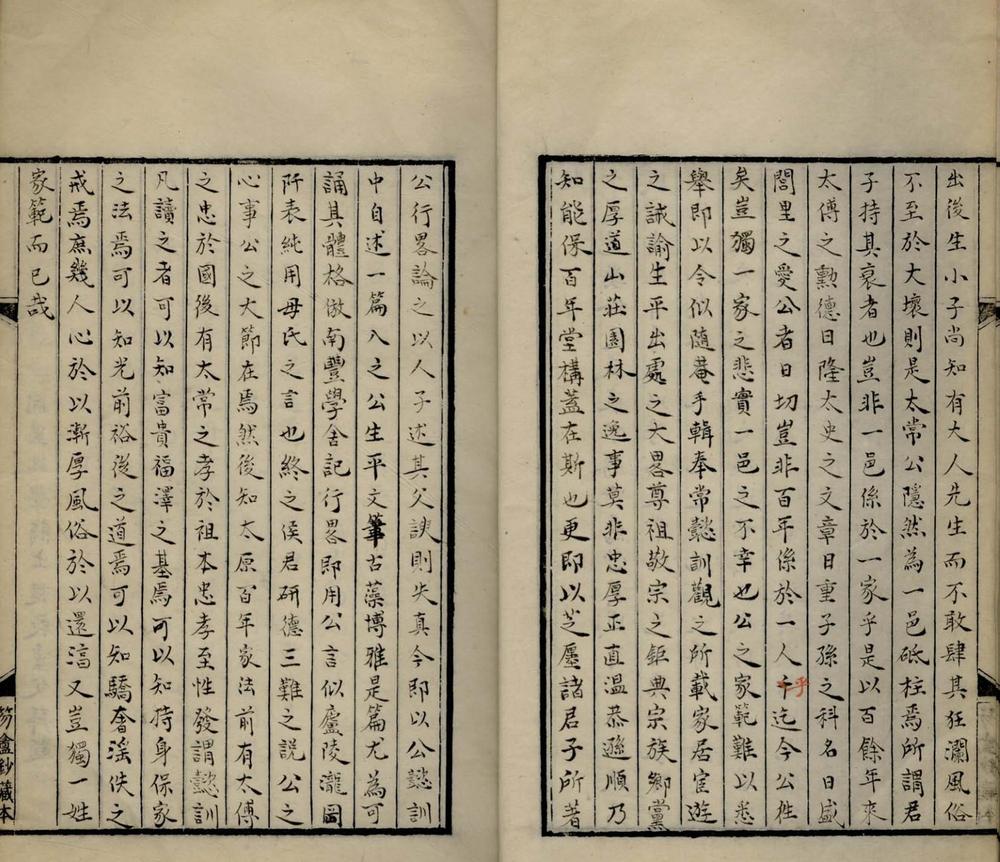 出後生小子尚知有大人先生而不敢肆其狂瀾風俗
不至於大壞則是太常公隱然為一邑砥柱焉所謂君
子持其衰者也豈非一邑係於一家乎是以百餘年來
太傅之勲德日隆太史之文章日重子孫之科名日盛
閭里之愛公者日切豈非百年係於一人乎迄今公徃
矣豈獨一家之悲實一邑之不幸也公之家範難以悉
舉即以令似隨菴手輯奉常懿訓觀之所載家居宦遊
之誠諭生平出處之大畧尊祖敬宗之鉅典宗族鄉黨
之厚道山莊園林之逸事莫非忠厚正直温恭遜順乃
知能保百年堂構蓋在斯也更即以芝麐諸君子所著
公行畧論之以人子述其父諛則失真今即以公懿訓
中自述一篇入之公生平文筆古藻博雅是篇尤為可
誦其體格倣南豐學舍記行畧即用公言似廬陵瀧岡
阡表純用母氏之言也終之侯君研德三難之説公之
心事公之大節在焉然後知太原百年家法前有太傅
之忠於國後有太常之孝於祖本忠孝至性發謂懿訓
凡讀之者可以知富貴福澤之基焉可以知持身保家
之法焉可以知光前裕後之道焉可以知驕奢淫佚之
戒焉庶幾人心於以漸厚風俗於以還湻又豈獨一姓
家範而已哉
鈔藏本